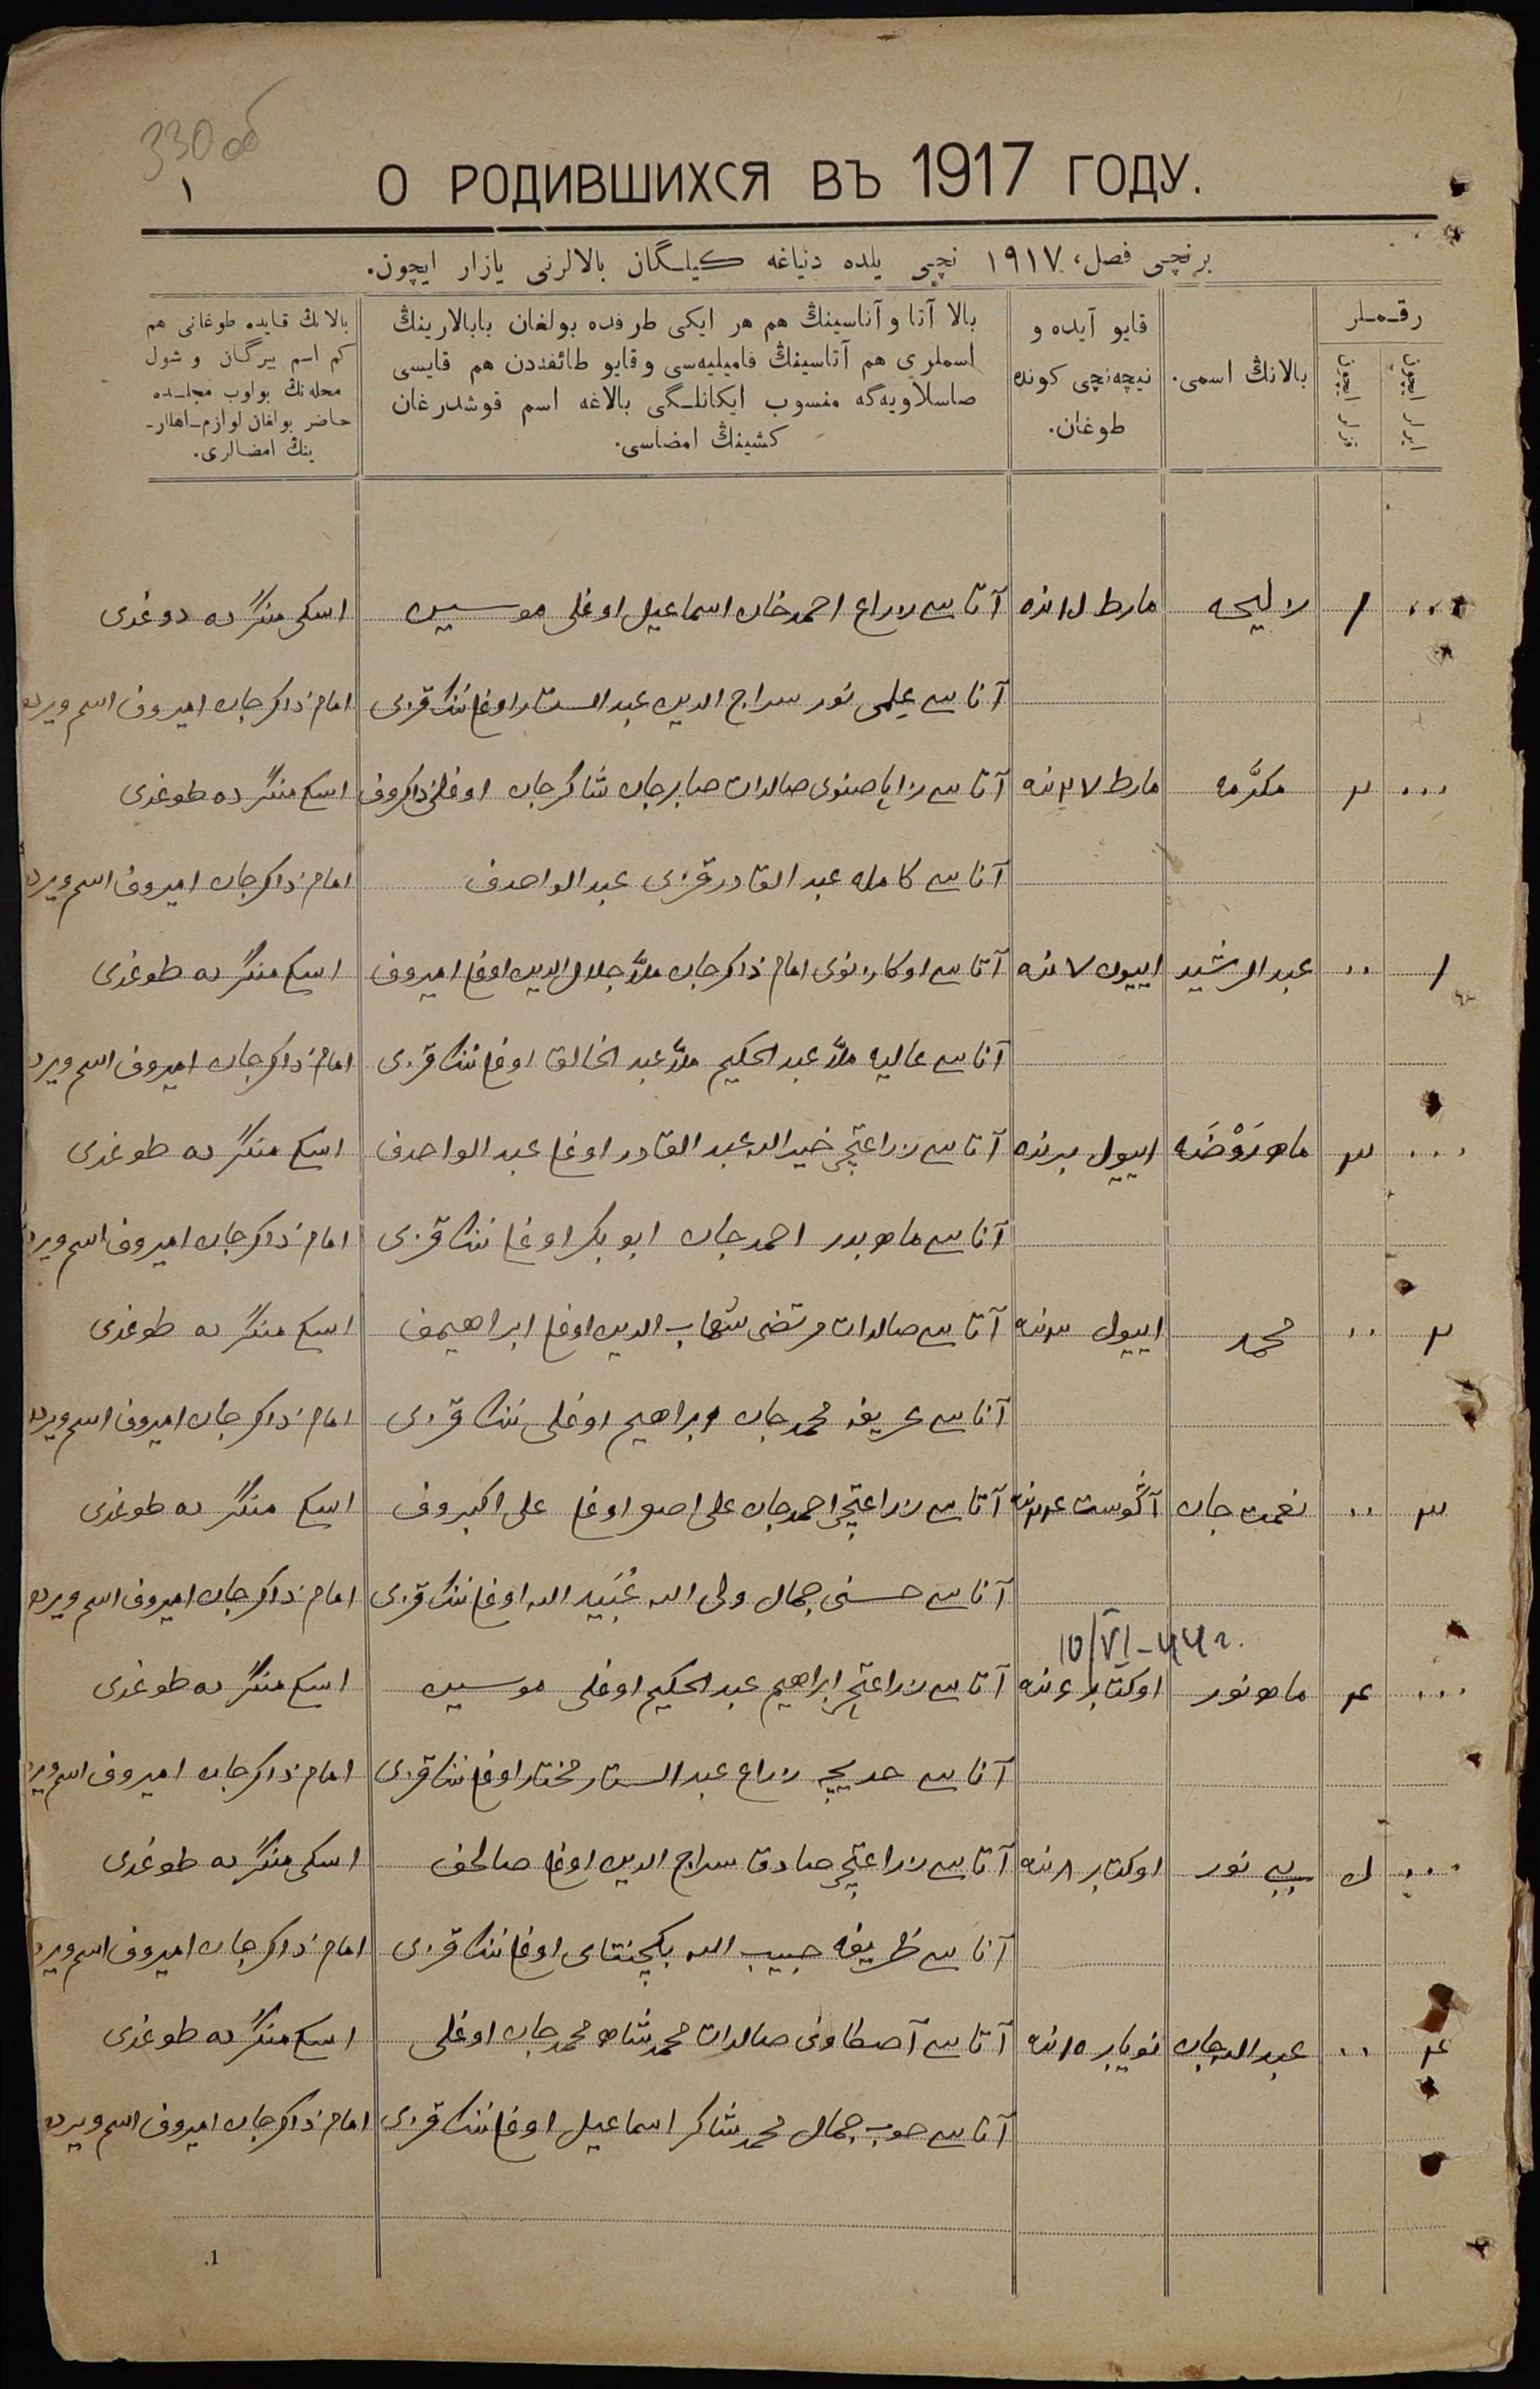 330 об
О РОДИВШИХСЯ ВЪ 1917 ГОДУ.
١
برنچی فصل، ١٩١٧ نچی یلده دنیاغه کیلـگان بالالرنی یازار ایچون.
رقـمـلر
ایرلر ایچون
قزلر ایچون
بالانڭ اسمی.
قایو آیده و نیچه‌نچی کونده طوغان.
بالا آتا و آناسینڭ هم هر ایکی طرفده بولغان بابالارینڭ
اسملری هم آتاسینڭ فامیلیه‌سی و قایو طائفه‌دن هم قایسی
صاسلاویه‌گه منسوب ایکانلـگی بالاغه اسم قوشدرغان
کشینڭ امضاسی.
بالانڭ قایده طوغانی هم
کم اسم بیرگان و شول
محله‌نڭ بولوب مجلـده
حاضر بولغان لوازم‌ـ‌اهلار‌ـ
ینڭ امضالری.
... ١ مارط ١٥ نده آتاسی احمدخان اسماعیل اوغلی موسین اسکی منگرده دوغدی
آناسی علمی نور سراج الدین عبد الستار اوغلننك قزی امام ذاکرجان امیروف اسم ویرده
... ٢ مکرَّمه مارط ٢٧ نده آتاسی صالدات صابرجان شاکرجان اوغلی ذاکروف اسکی منگرده طوغدی
آناسی کامله عبد القادر قزی عبد الواحدف امام ذاکرجان امیروف اسم ویرده
١ .. عبد الرشید اییون ٧ نده آتاسی امام ذاکرجان ملاَّ جلال الدین اوغلی امیروف اسکی منگرده طوغدی
آناسی عالیه ملاَّ عبد الحکیم ملاَّ عبد الخالق اوغلننك قزی امام ذاکرجان امیروف اسم ویرده
... ٣ ماه رَوْضَه اییول برنده آتاسی زراعتچی خیرالله عبد القادر اوغلی عبد الواحدف اسکی منگرده طوغدی
آناسی ماه بدر احمدجان ابو بکر اوغلننك قزی امام ذاکرجان امیروف اسم ویرده
٢ .. محمد اییول ٣ نده آتاسی صالدات مرتضی شهاب الدین اوغلی ابراهیمف اسکی منگرده طوغدی
آناسی عریفه محمدجان ابراهیم اوغلی ننك قزی امام ذاکرجان امیروف اسم ویرده
٣ .. نعمت جان آگوست ٢٤ نده آتاسی زراعتچی احمدجان علی اصغر اوغلی علی اکبروف اسکی منگرده طوغدی
آناسی حسنی جمال ولی الله عُبَید الله اوغلننك قزی امام ذاکرجان امیروف اسم ویرده
10/VI-44г.
... ٤ ماه نور اوکتابر ٤ نده آتاسی زراعتچی ابراهیم عبد الحکیم اوغلی موسین اسکی منگرده طوغدی
آناسی خدیجه عبد الستار مختار اوغلننك قزی امام ذاکرجان امیروف اسم ویرده
... ٥ بی بی نور اوکتابر ٨ نده آتاسی زراعتچی صادق سراج الدین اوغلی صالحف اسکی منگرده طوغدی
آناسی ظریفه حبیب الله اوغلننك قزی امام ذاکرجان امیروف اسم ویرده
٤ .. عبد الله جان نویابر ١٥ نده آتاسی صالدات محمدشاه محمدجان اوغلی اسکی منگرده طوغدی
آناسی حوب جمال محمدشاکر اسماعیل اوغلننك قزی امام ذاکرجان امیروف اسم ویرده
1.